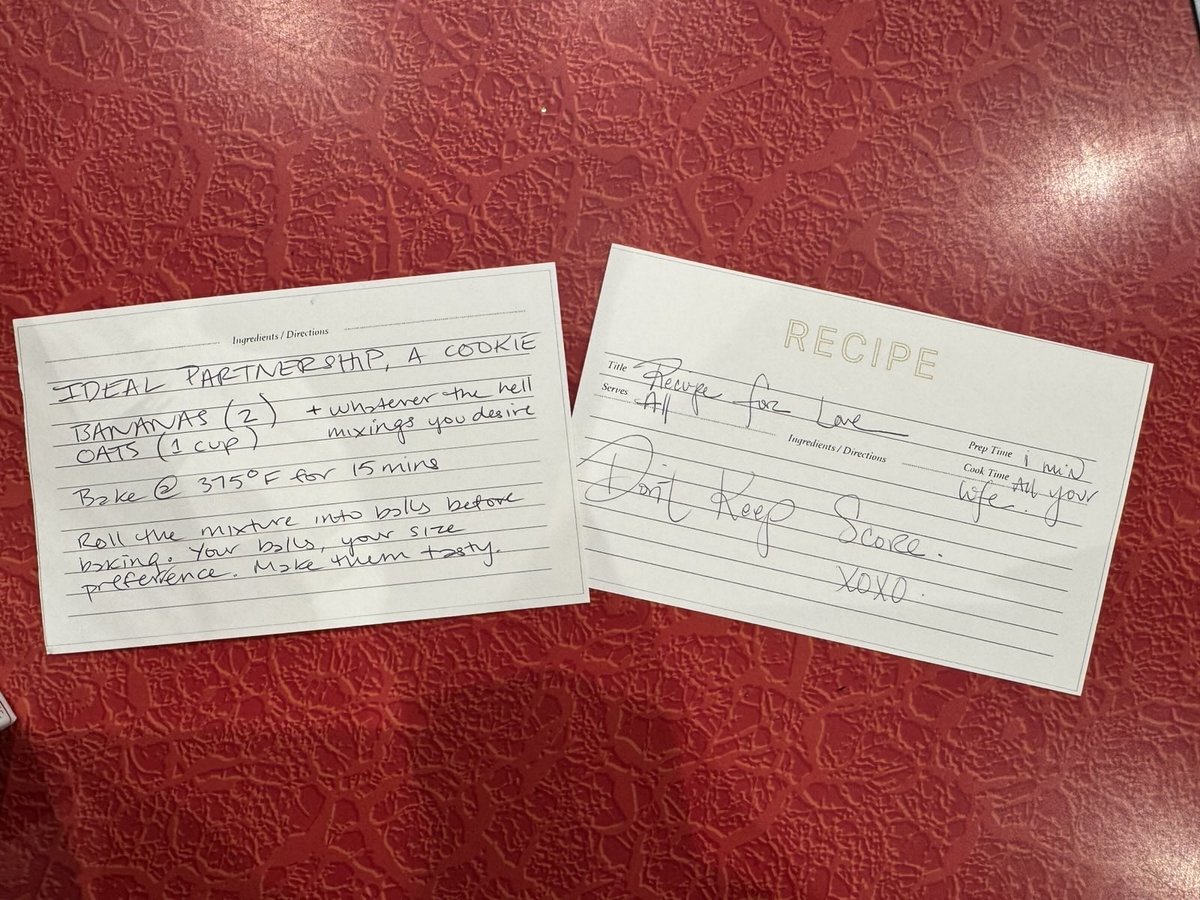 Ingredients / Directions
IDEAL PARTNERSHIP, A COOKIE
BANANAS (2) + whatever the hell
OATS (1 cup) mixings you desire
Bake @ 375°F for 15 mins
Roll the mixture into balls before
baking. Your balls, your size
preference. Make them tasty.
RECIPE
Title Recipe for Love
Serves All
Prep Time 1 min
Ingredients / Directions
Cook Time All your
life.
Don't Keep Score.
XOXO.